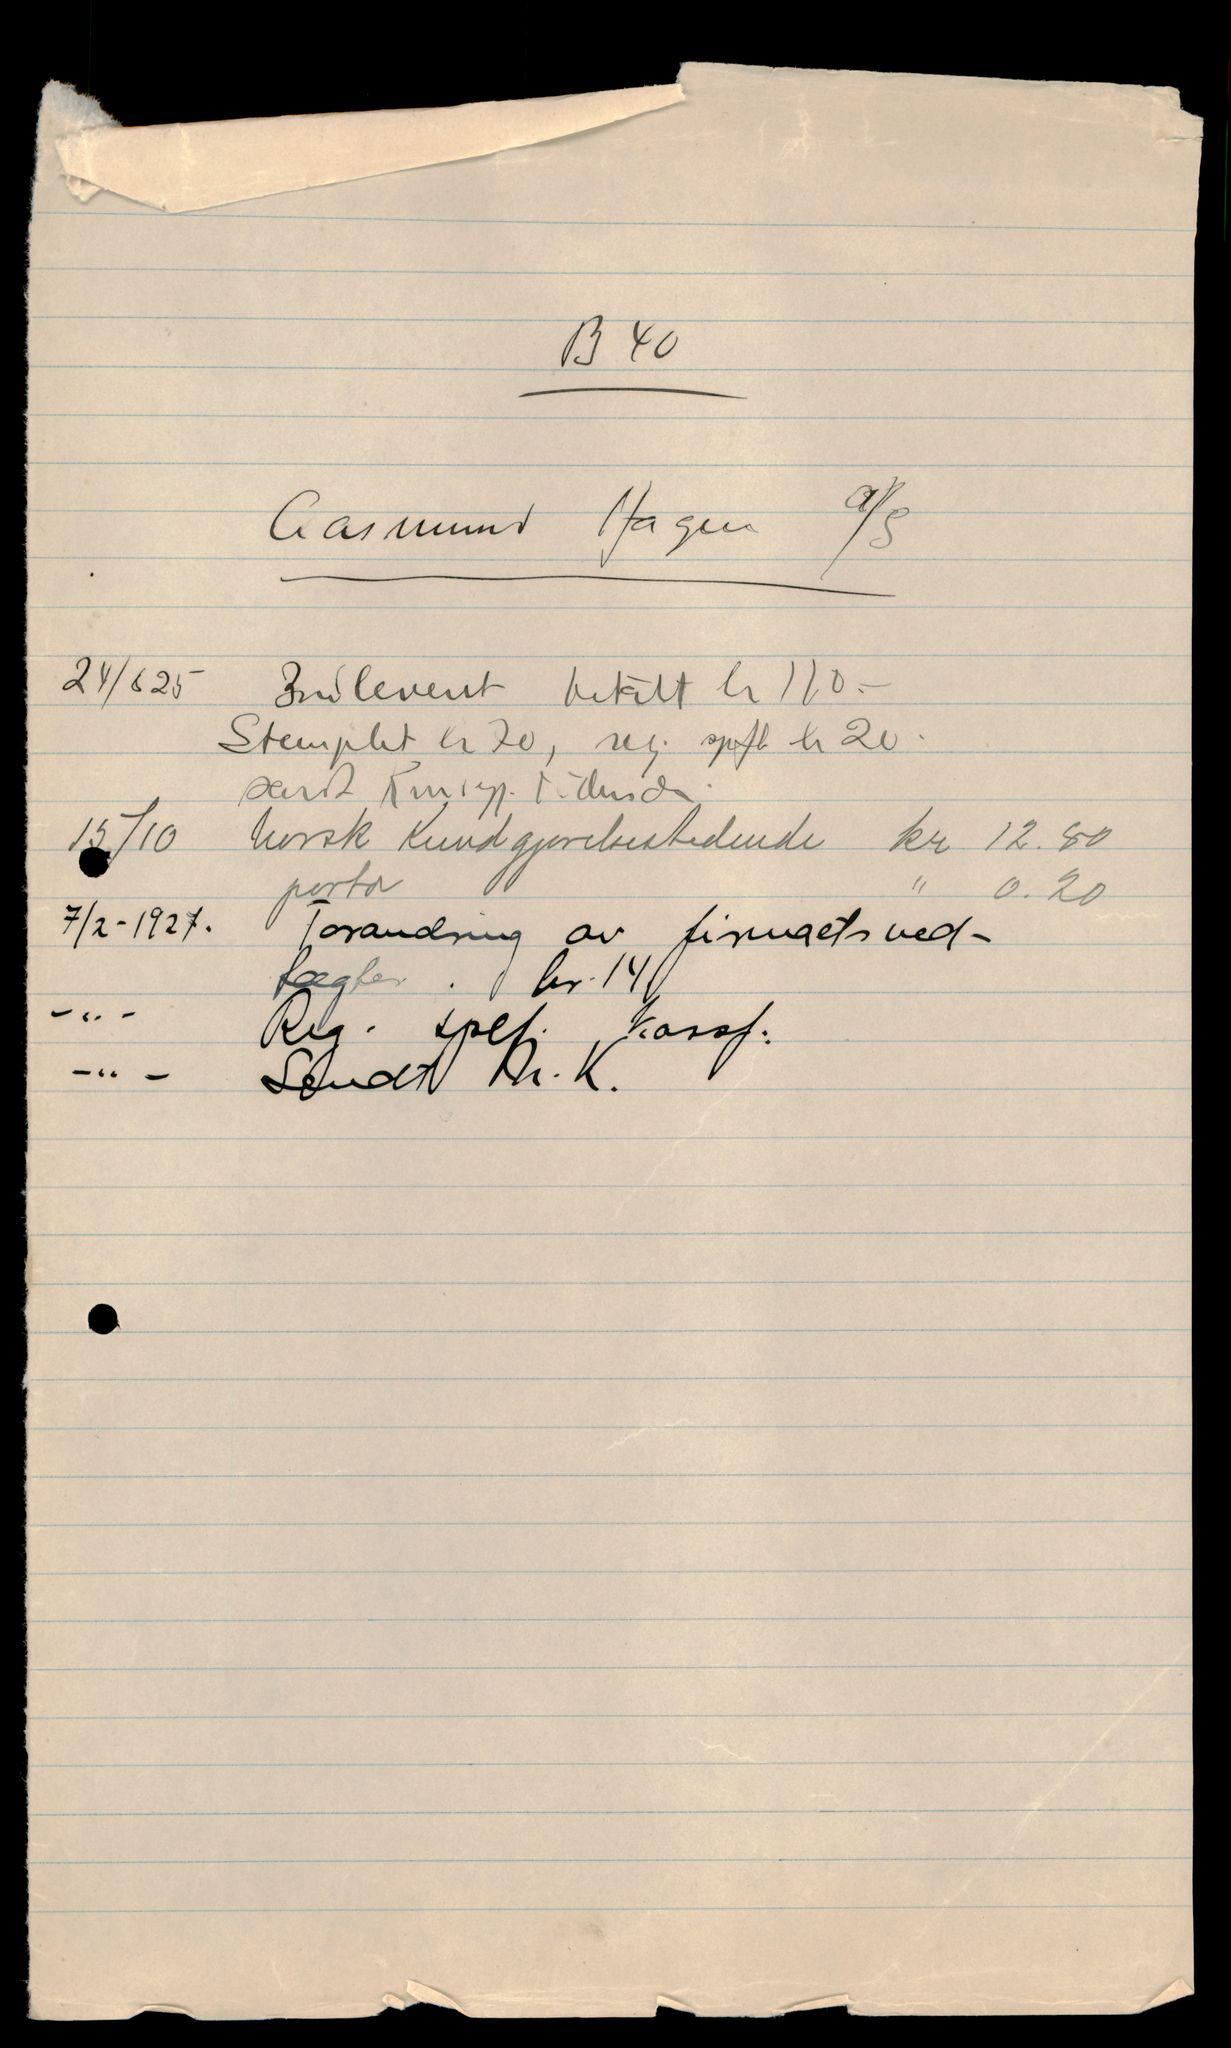 B 40
Aasmund Hagen A/S
24/6 25 Indlevert betalt kr 110.-
Stemplet kr 70, reg. spfk kr 20.
sendt Kundgj. tidende.
15/10 Norsk Kundgjørelsestidende kr 12.80
porto " 0.20
7/2-1927. Forandring av firmaets ved-
tægter. kr. 14
-"- Reg. spef. kassf.
-"- Sendt N. K.